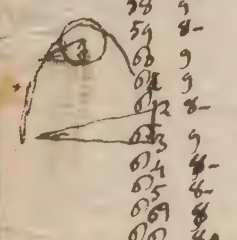 58 9
59 8-
60 9
61 9
62 8-
63 9
64 8-
65 8-
66 8